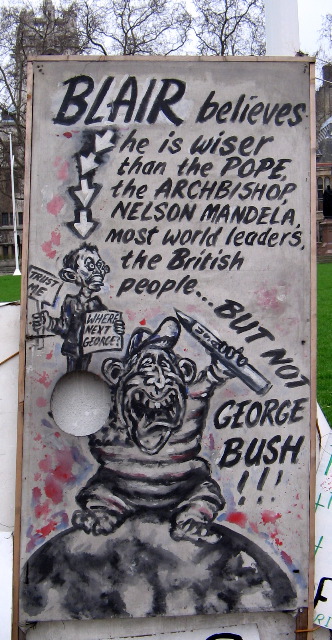 BLAIR believes
he is wiser
than the POPE,
the ARCHBISHOP,
NELSON MANDELA,
most world leaders,
the British
people...
BUT NOT
GEORGE
BUSH
!!!
TRUST
ME
WHERE
NEXT
GEORGE?